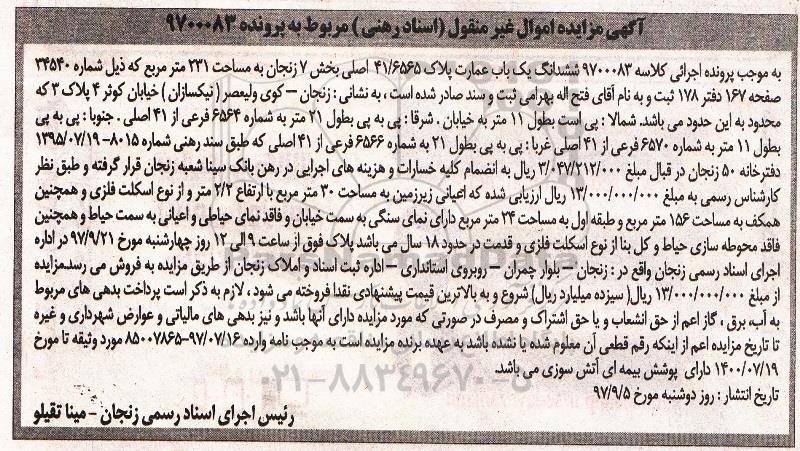 آگهی مزایده اموال غیر منقول (اسناد رهنی) مربوط به پرونده ۹۷۰۰۰۸۳
به موجب پرونده اجرائی کلاسه ۹۷۰۰۰۸۳ ششدانگ یک باب عمارت پلاک ۴۱/۶۵۶۵ اصلی بخش ۷ زنجان به مساحت ۲۳۱ متر مربع که ذیل شماره ۳۴۵۴۰
صفحه ۱۶۷ دفتر ۱۷۸ ثبت و به نام آقای فتح اله بهرامی ثبت و سند صادر شده است ، به نشانی : زنجان – کوی ولیعصر (نیکسازان) خیابان کوثر ۴ پلاک ۳ که
محدود به این حدود می باشد. شمالا : پی است بطول ۱۱ متر به خیابان . شرقا : پی به پی بطول ۲۱ متر به شماره ۶۵۶۴ فرعی از ۴۱ اصلی . جنوبا : پی به پی
بطول ۱۱ متر به شماره ۶۵۷۰ فرعی از ۴۱ اصلی غربا : پی به پی بطول ۲۱ به شماره ۶۵۶۶ فرعی از ۴۱ اصلی که طبق سند رهنی شماره ۸۰۱۵- ۱۳۹۵/۰۷/۱۹
دفترخانه ۵۰ زنجان در قبال مبلغ ۳/۰۴۷/۲۱۲/۰۰۰ ریال به انضمام کلیه خسارات و هزینه های اجرایی در رهن بانک سینا شعبه زنجان قرار گرفته و طبق نظر
کارشناس رسمی به مبلغ ۱۳/۰۰۰/۰۰۰/۰۰۰ ریال ارزیابی شده که اعیانی زیرزمین به مساحت ۳۰ متر مربع با ارتفاع ۲/۲ متر و از نوع اسکلت فلزی و همچنین
همکف به مساحت ۱۵۶ متر مربع و طبقه اول به مساحت ۲۴ متر مربع دارای نمای سنگی به سمت خیابان و فاقد نمای حیاطی و اعیانی به سمت حیاط و همچنین
فاقد محوطه سازی حیاط و کل بنا از نوع اسکلت فلزی و قدمت در حدود ۱۸ سال می باشد پلاک فوق از ساعت ۹ الی ۱۲ روز چهارشنبه مورخ ۹۷/۹/۲۱ در اداره
اجرای اسناد رسمی زنجان واقع در : زنجان – بلوار چمران – روبروی استانداری – اداره ثبت اسناد و املاک زنجان از طریق مزایده به فروش می رسد.مزایده
از مبلغ ۱۳/۰۰۰/۰۰۰/۰۰۰ ریال( سیزده میلیارد ریال) شروع و به بالاترین قیمت پیشنهادی نقدا فروخته می شود ، لازم به ذکر است پرداخت بدهی های مربوط
به آب، برق ، گاز اعم از حق انشعاب و یا حق اشتراک و مصرف در صورتی که مورد مزایده دارای آنها باشد و نیز بدهی های مالیاتی و عوارض شهرداری و غیره
تا تاریخ مزایده اعم از اینکه رقم قطعی آن معلوم شده یا نشده باشد به عهده برنده مزایده است به موجب نامه وارده ۹۷/۰۷/۱۶-۸۵۰۰۷۸۶۵ مورد وثیقه تا مورخ
۱۴۰۰/۰۷/۱۹ دارای پوشش بیمه ای آتش سوزی می باشد.
تاریخ انتشار : روز دوشنبه مورخ ۹۷/۹/۵
رئیس اجرای اسناد رسمی زنجان – مینا تقیلو
ParsNamadData
۰۲۱-۸۸۳۴۹۶۷۰-۵